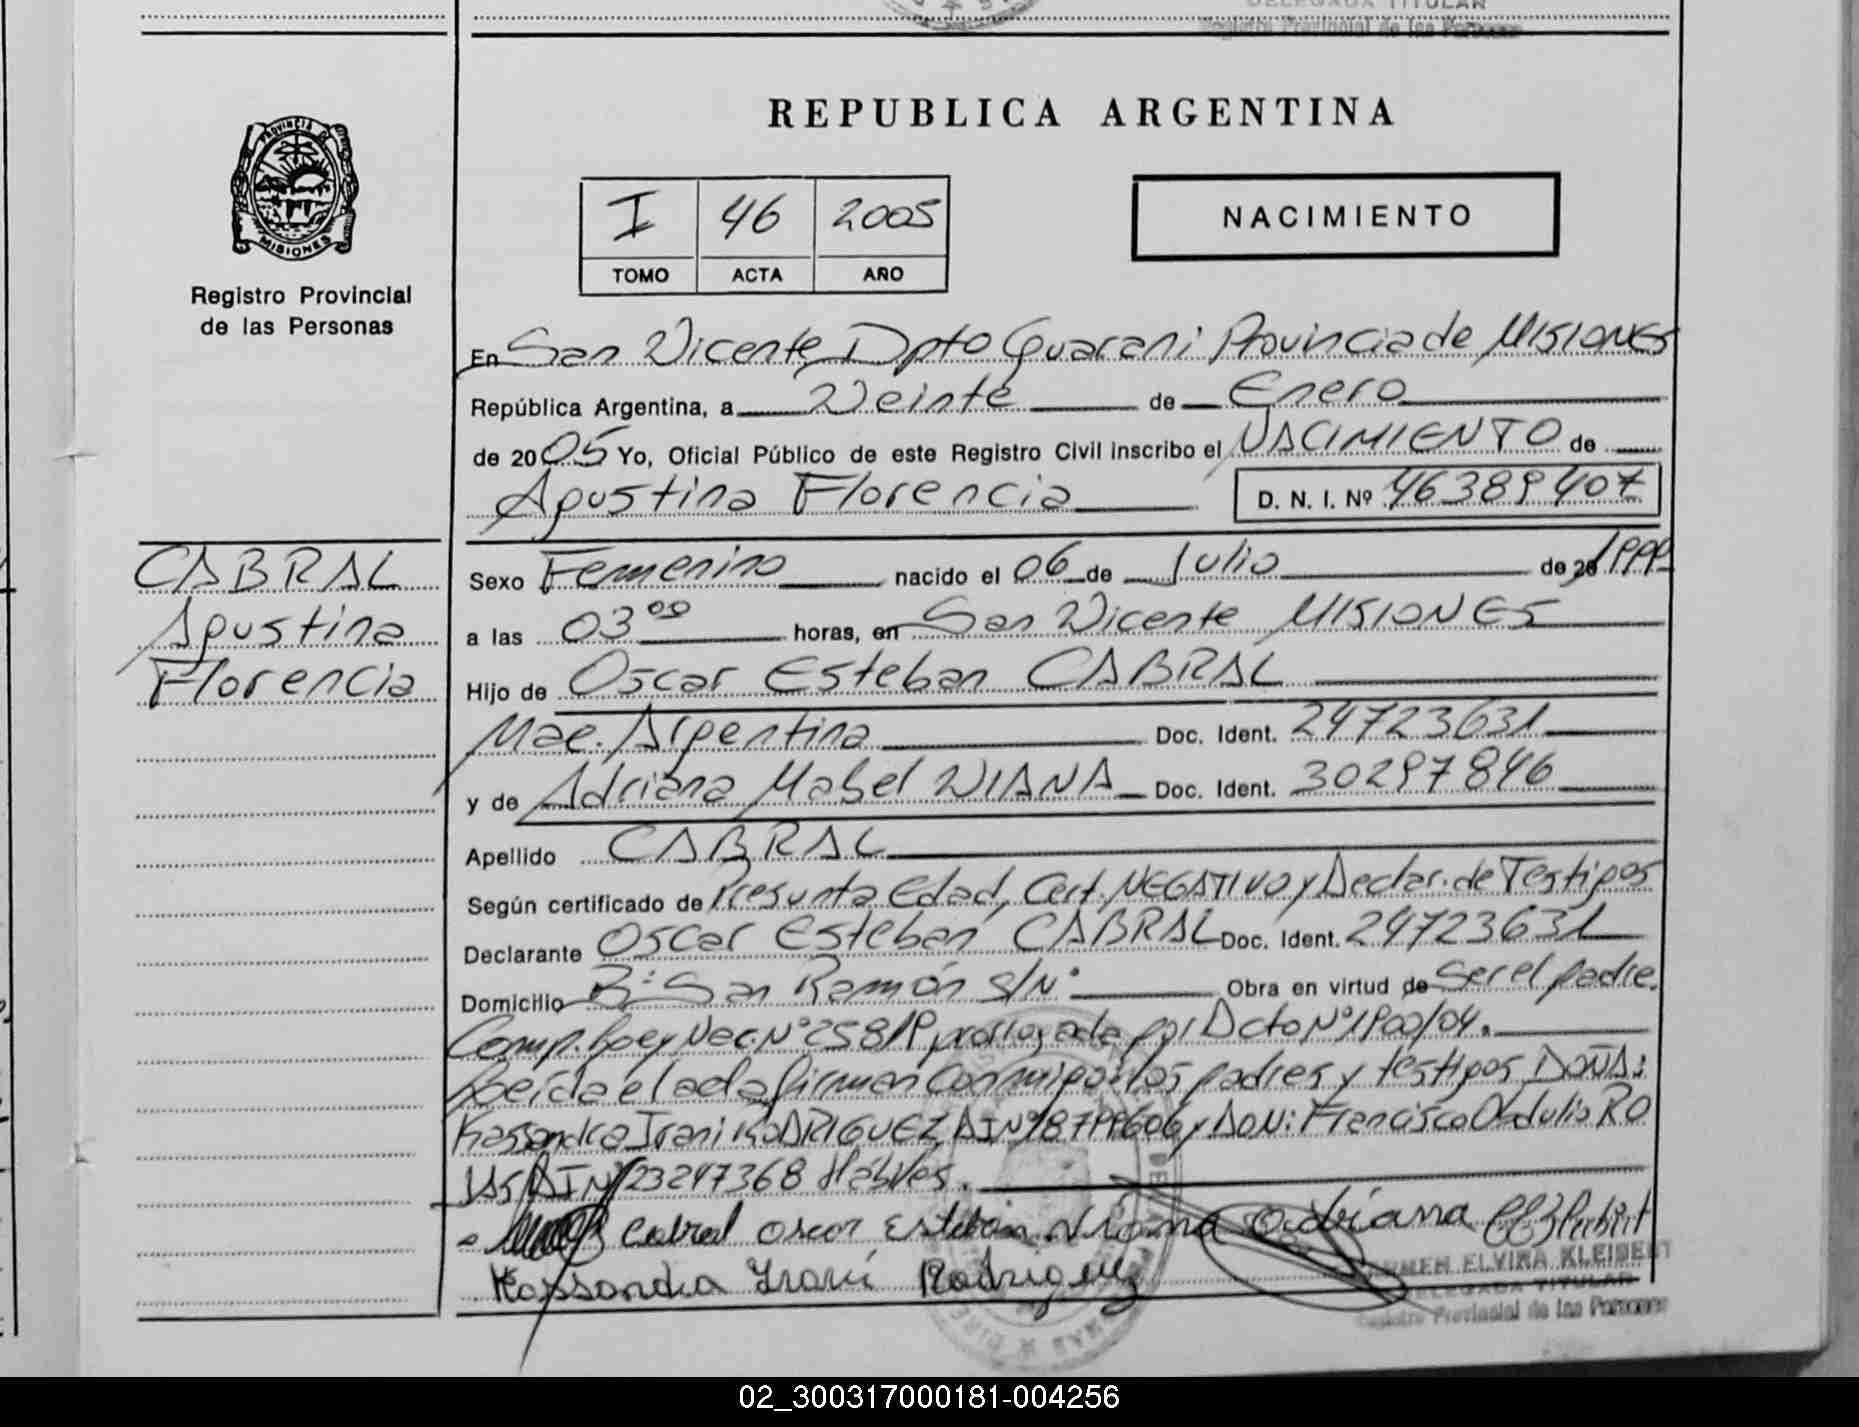 DELEGADA TITULAR
Registro Provincial de las Personas
REPUBLICA ARGENTINA
PROVINCIA DE
MISIONES
Registro Provincial
de las Personas
I 46 2005
TOMO ACTA AÑO
NACIMIENTO
En San Vicente Dpto Guarani Provincia de MISIONES
República Argentina, a Veinte de Enero
de 2005 Yo, Oficial Público de este Registro Civil inscribo el NACIMIENTO de
Agustina Florencia D. N. I. Nº 46389407
CABRAL
Agustina
Florencia
Sexo Femenino nacido el 06 de Julio de 20 1999
a las 03 00 horas, en San Vicente MISIONES
Hijo de Oscar Esteban CABRAL
Nac. Argentina Doc. Ident. 24723631
y de Adriana Mabel VIANA Doc. Ident. 30297846
Apellido CABRAL
Según certificado de Presunta Edad, Cert. NEGATIVO y Declar. de Testigos
Declarante Oscar Esteban CABRAL Doc. Ident. 24723631
Domicilio Bº San Ramón S/Nº Obra en virtud de ser el padre.
Comp. Ley Nac. Nº 25819 prorrogada por Dcto Nº 1900/04.
Leída el acta firman conmigo los padres y testigos DOÑA:
Kassandra Irani RODRIGUEZ DINº 18799606 y DON: Francisco Obdulio RO
JAS DINº 23247368 Hábiles.
Cabral Oscar Esteban Viana Adriana
Kassandra Irani Rodriguez
CARMEN ELVIRA KLEIBERT
DELEGADA TITULAR
Registro Provincial de las Personas
02_300317000181-004256